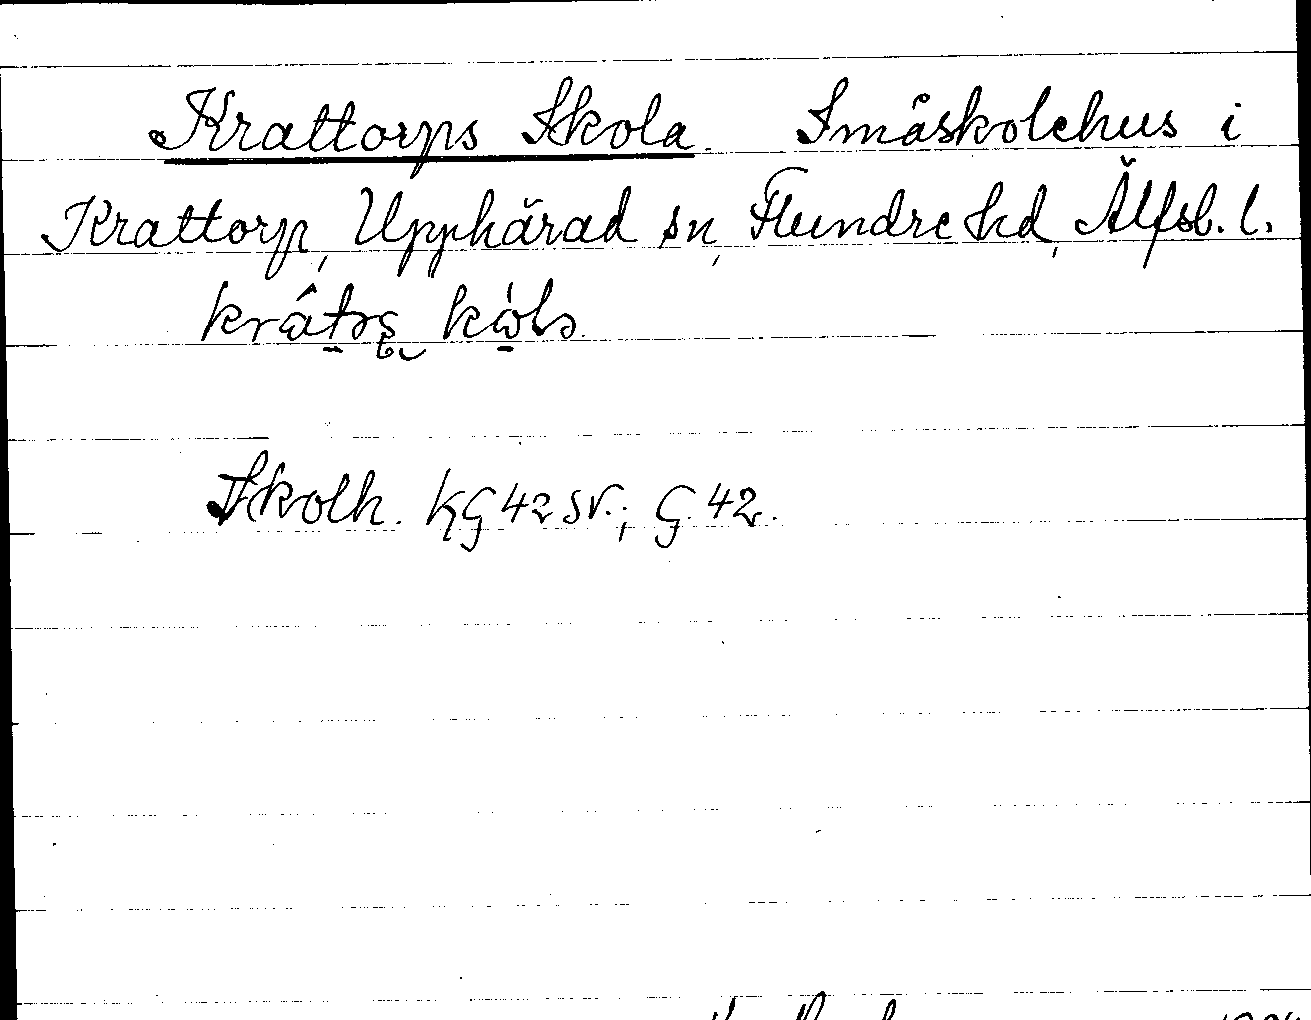 Krattorps Skola. Småskolehus i
Krattorp, Upphärad sn, Flundre hd, Älfsb. l.
Skolh. KG 42 sv.; G. 42.